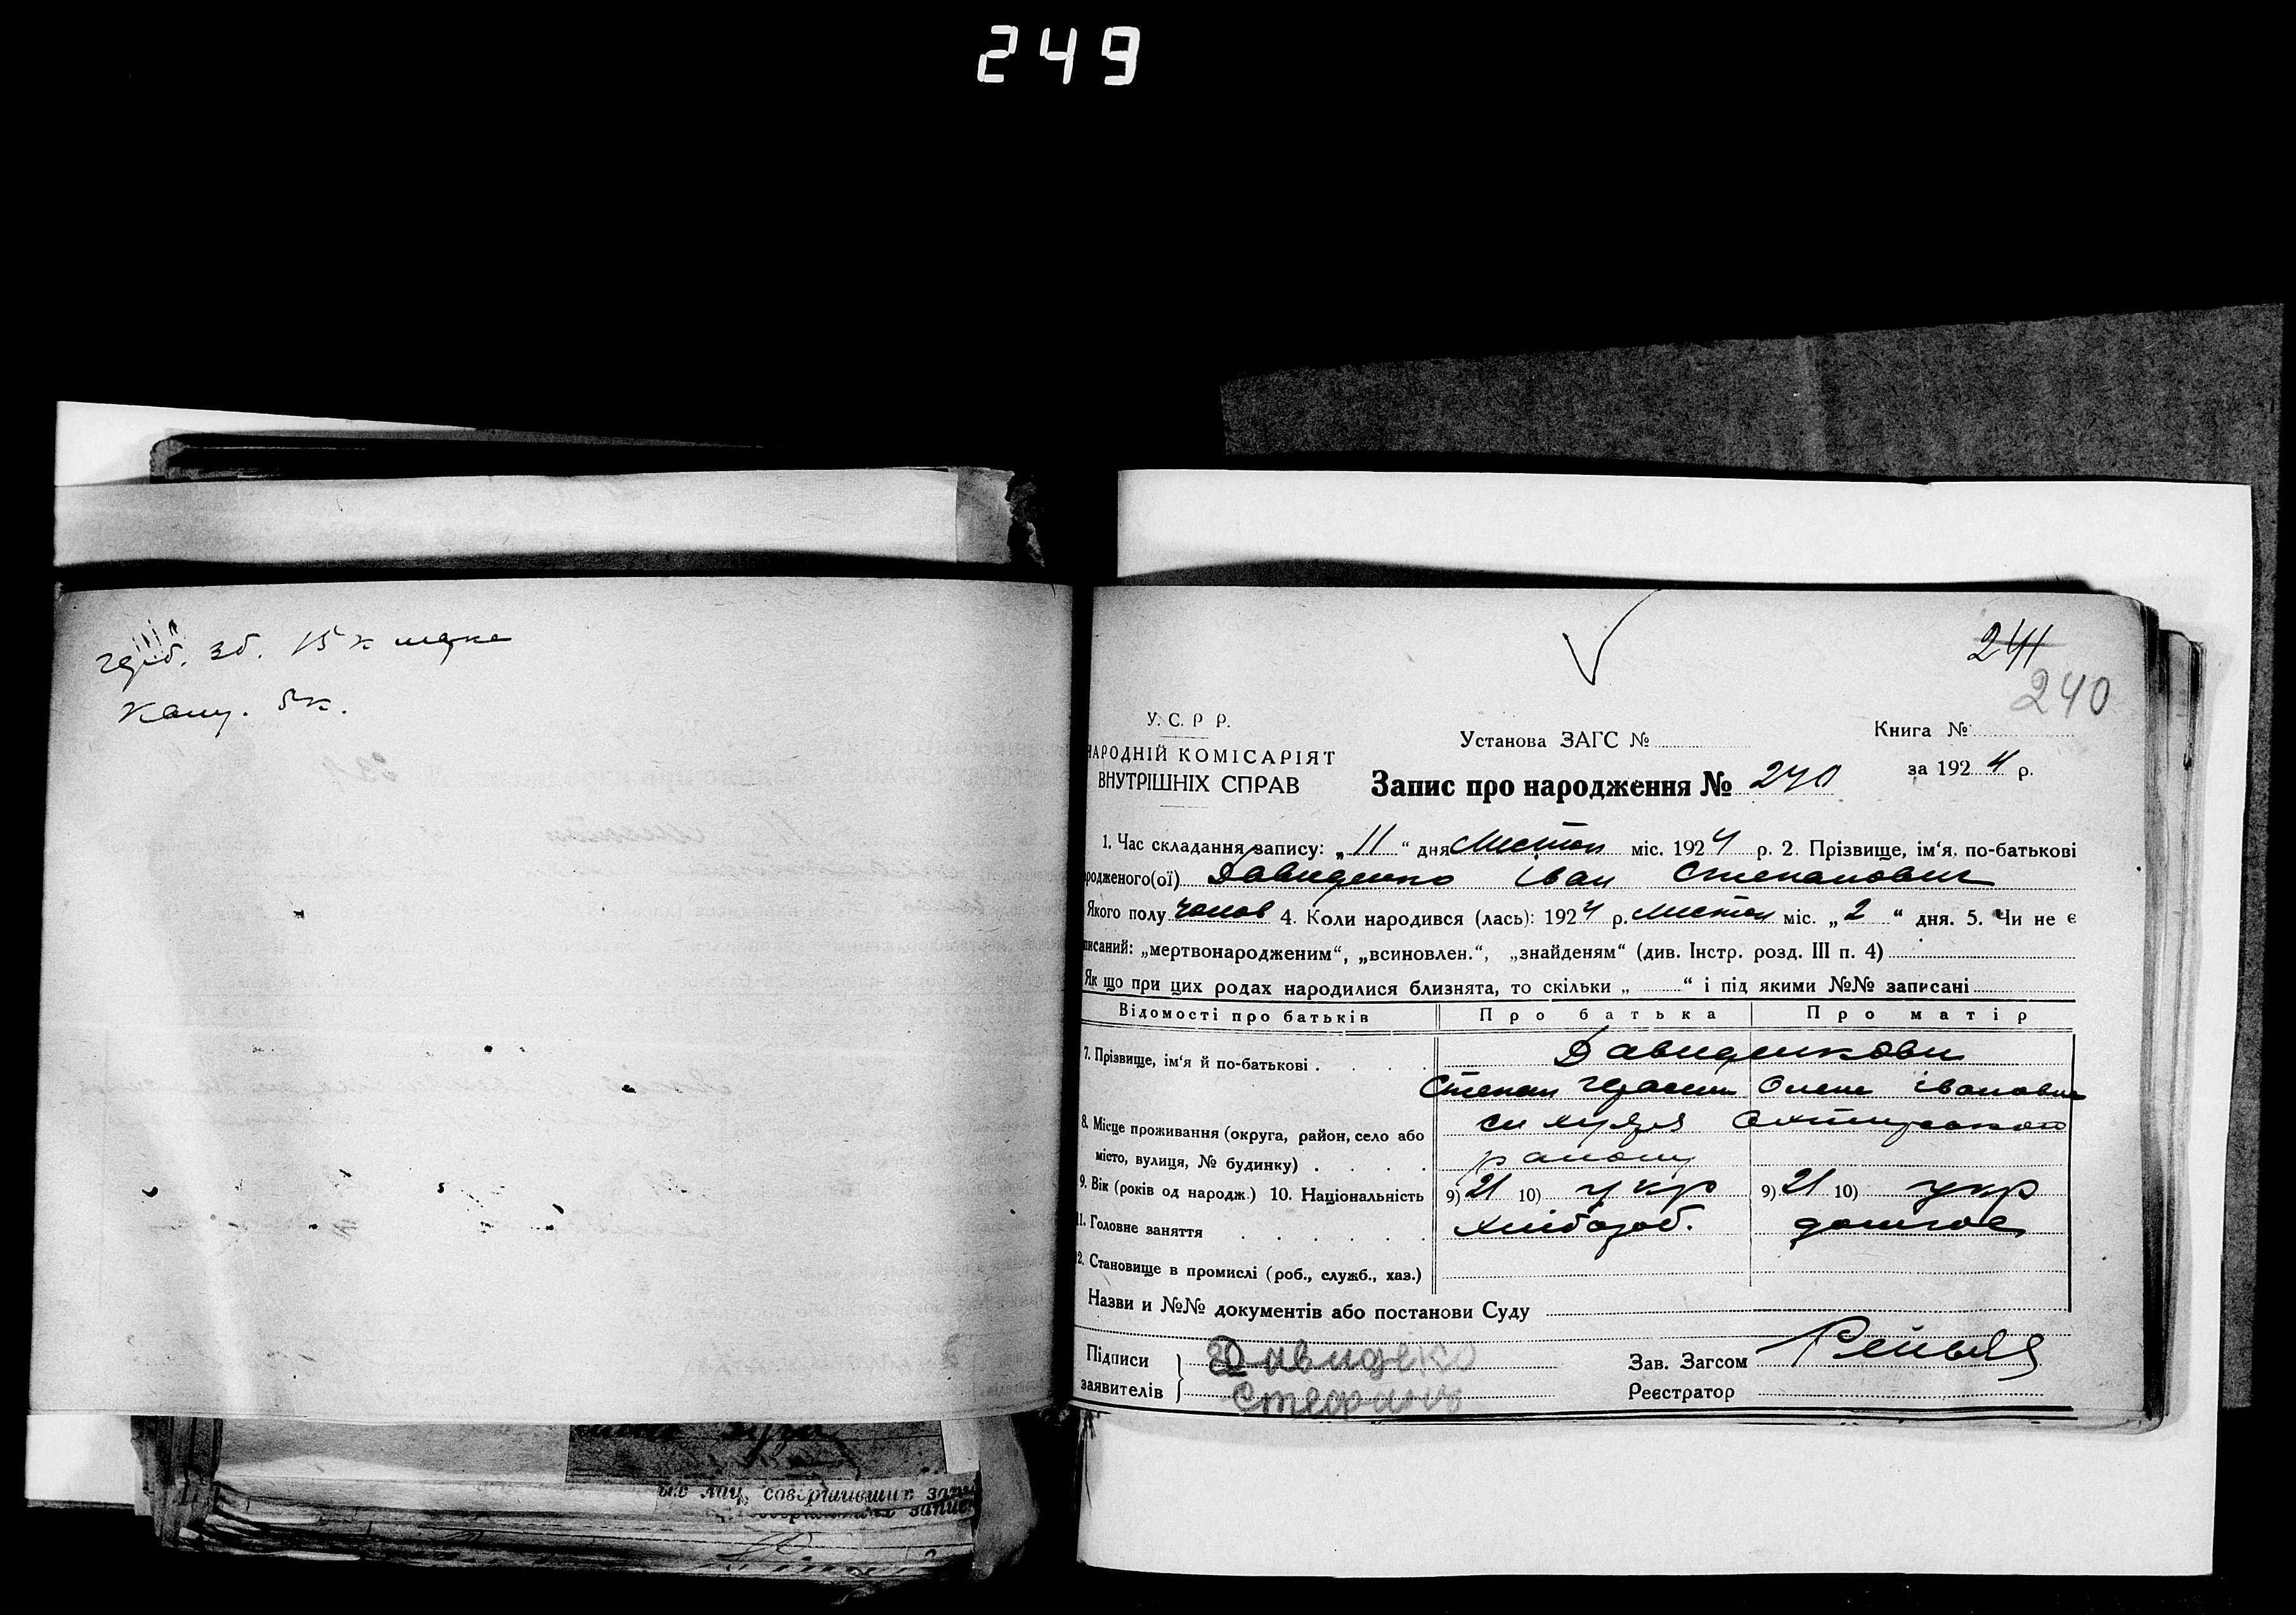 249
збір. зб. 15 к марка
Канц. 5 к.
241
240
У. С. Р Р.
НАРОДНІЙ КОМІСАРІЯТ
ВНУТРІШНІХ СПРАВ
Установа ЗАГС №
Книга №
за 1924 р.
Запис про народження № 240
1. Час складання запису: „11“ дня Листоп міс. 1924 р. 2. Прізвище, ім'я, по-батькові
родженого(ої) Давиденко Іван Степанович
Якого полу чолов 4. Коли народився (лась): 1924 р. листоп міс. „2“ дня. 5. Чи не є
писаний: „мертвонародженим“, „всиновлен.“, „знайденям“ (див. Інстр. розд. III п. 4)
Як що при цих родах народилися близнята, то скільки „ “ і під якими №№ записані
Відомості про батьків Про батька Про матір
7. Прізвище, ім'я й по-батькові . . . . Давиденкови
Степан Герасим Олена Івановна
8. Місце проживання (округа, район, село або
місто, вулиця, № будинку) . . . . району
9. Вік (років од народж.) 10. Національність 9) 21 10) укр 9) 21 10) укр
11. Головне заняття . . . . . . хлібороб. домгос
2. Становище в промислі (роб., служб., хаз.)
Назви и №№ документів або постанови Суду
Підписи
заявителів
Давидеко
Стефану
Зав. Загсом
Реєстратор
лиц, совершивших запи
записи